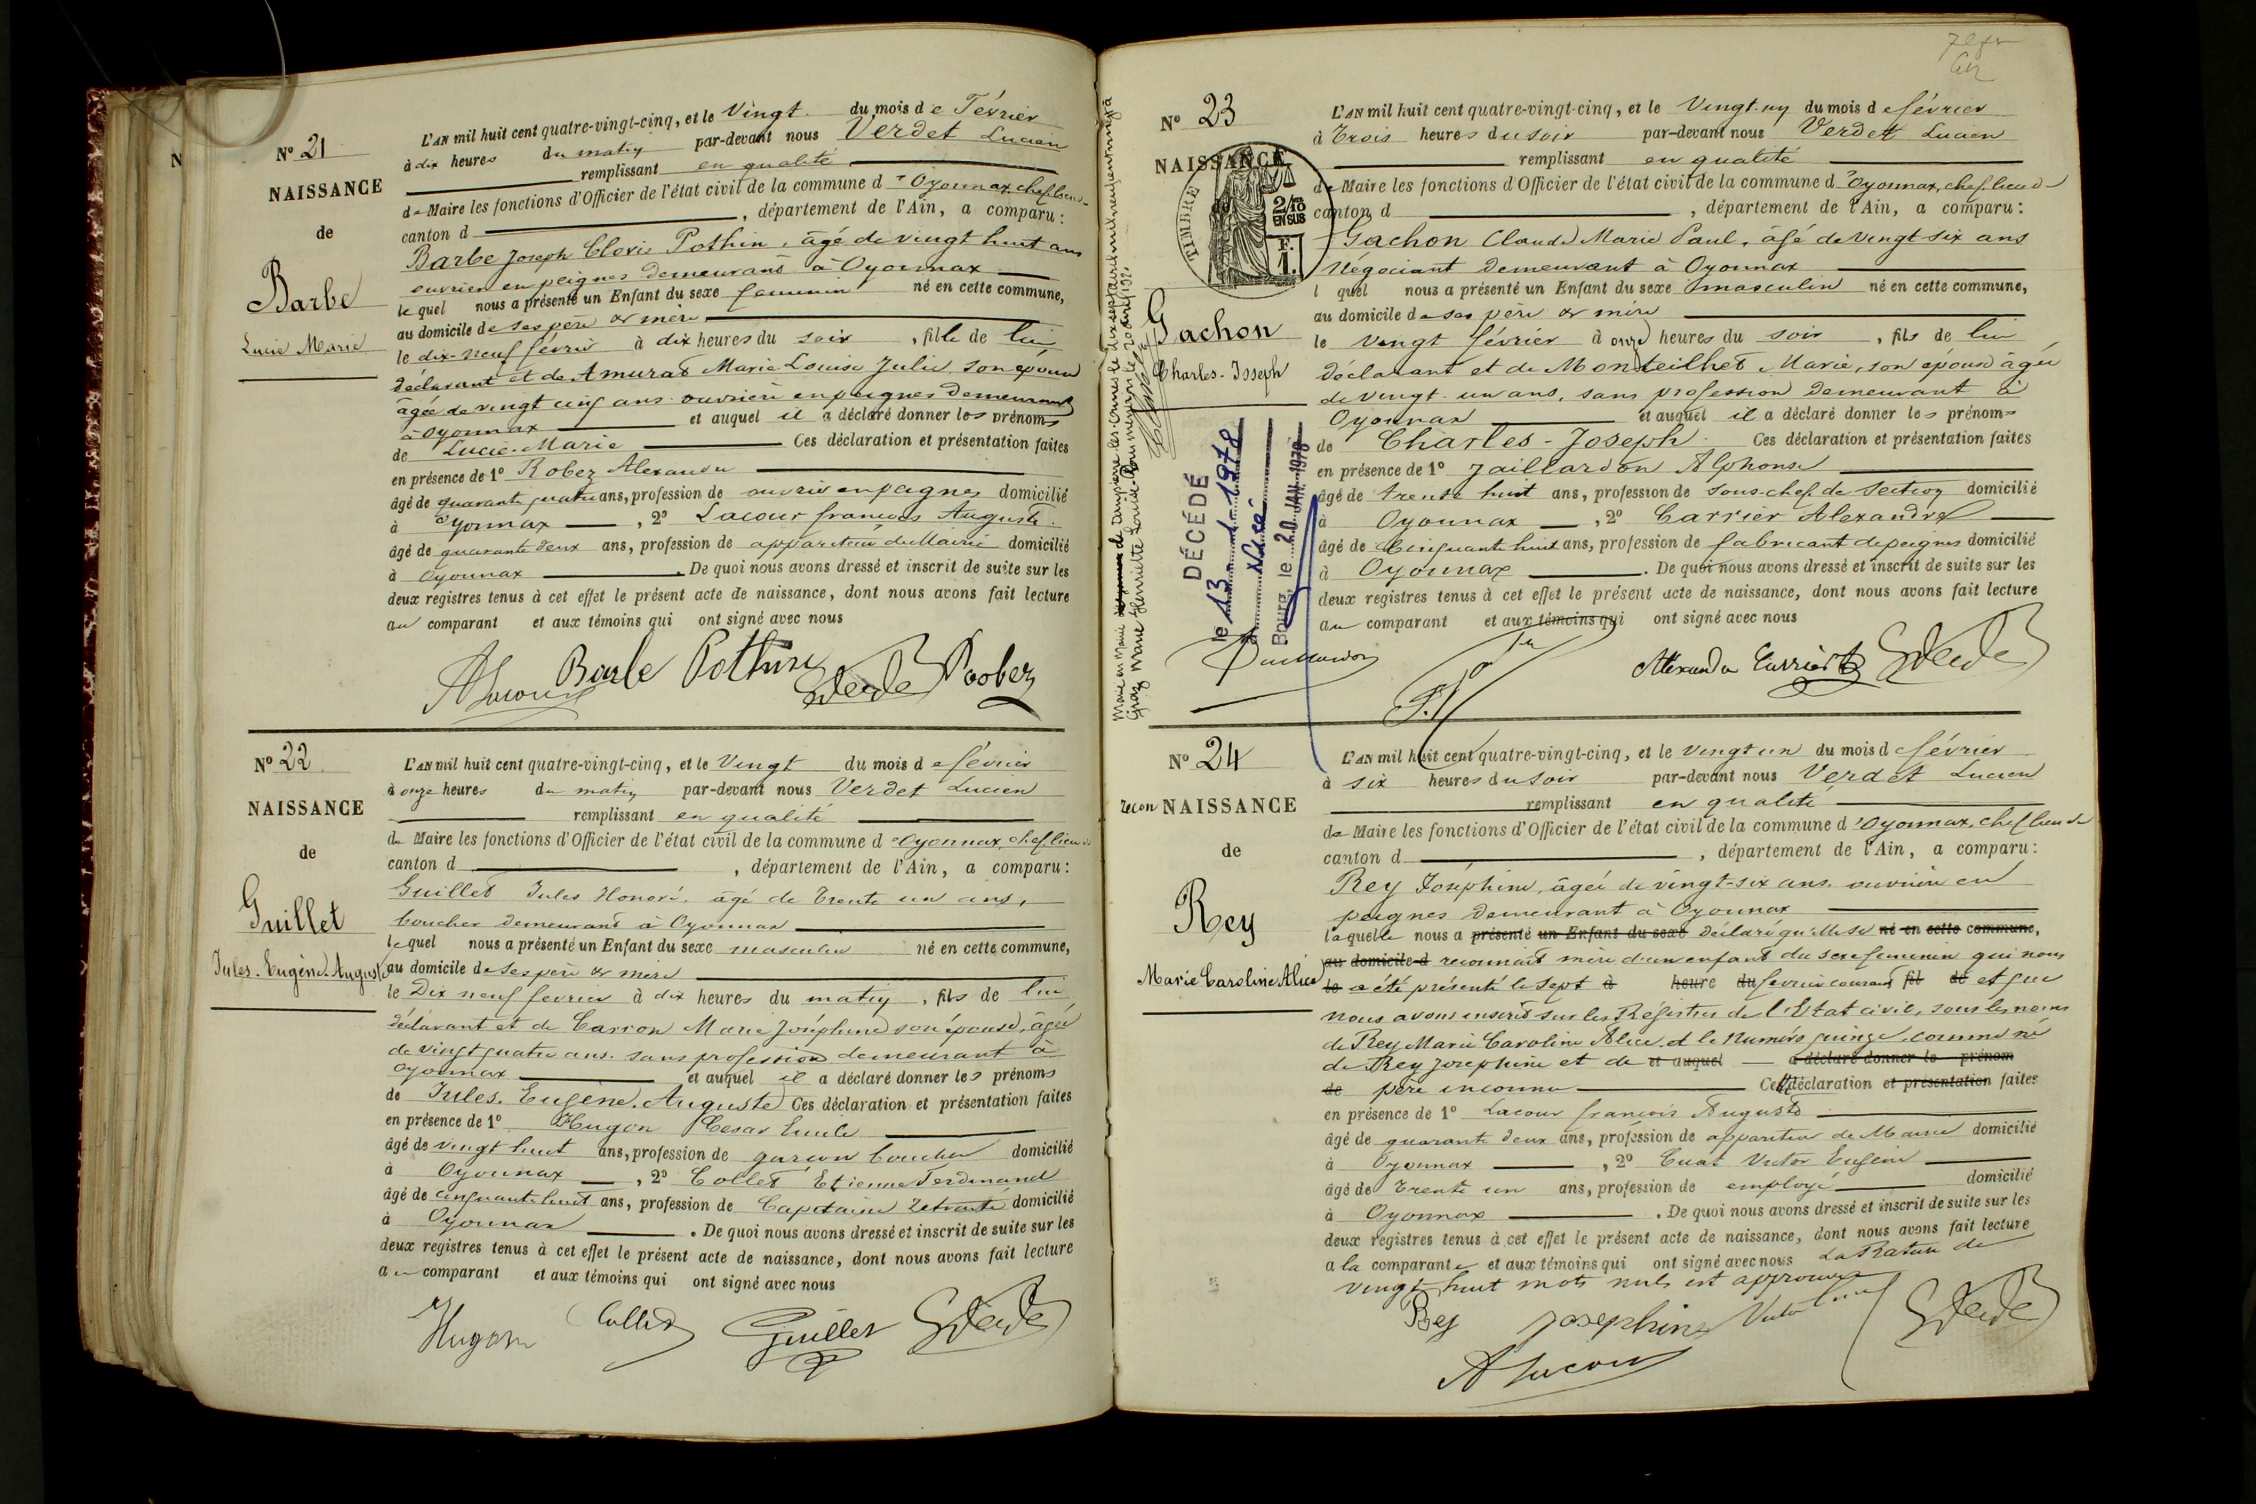 N
Nº 21
NAISSANCE
de
Barbe
Lucie Marie
L'AN mil huit cent quatre-vingt-cinq, et le Vingt du mois de Février
à dix heures du matin par-devant nous Verdet Lucien
remplissant en qualité
de Maire les fonctions d'Officier de l'état civil de la commune d'Oyonnax, chef lieu de
canton d , département de l'Ain, a comparu :
Barbe Joseph Clovis Pothin, âgé de vingt huit ans
ouvrier en peignes demeurant à Oyonnax
lequel nous a présenté un Enfant du sexe féminin né en cette commune,
au domicile de ses père & mère
le dix-neuf février à dix heures du soir , fille de lui
déclarant et de Amurat Marie Louise Julie, son épouse
âgée de vingt cinq ans ouvrière en peignes demeurant
à Oyonnax et auquel il a déclaré donner les prénoms
de Lucie-Marie Ces déclaration et présentation faites
en présence de 1º Robez Alexandre
âgé de quarante quatre ans, profession de ouvrier en peignes domicilié
à Oyonnax , 2º Lacour françois Auguste
âgé de quarante deux ans, profession de appariteur de Mairie domicilié
à Oyonnax . De quoi nous avons dressé et inscrit de suite sur les
deux registres tenus à cet effet le présent acte de naissance, dont nous avons fait lecture
au comparant et aux témoins qui ont signé avec nous
ALacour Barbe Pothin Verdet Robez
Nº 22
NAISSANCE
de
Guillet
Jules-Eugène-Auguste
L'AN mil huit cent quatre-vingt-cinq, et le Vingt du mois de février
à onze heures du matin par-devant nous Verdet Lucien
remplissant en qualité
de Maire les fonctions d'Officier de l'état civil de la commune d'Oyonnax, chef lieu de
canton d , département de l'Ain, a comparu :
Guillet Jules Honoré, âgé de trente un ans,
boucher demeurant à Oyonnax
lequel nous a présenté un Enfant du sexe masculin né en cette commune,
au domicile de ses père & mère
le Dix neuf février à dix heures du matin , fils de lui
déclarant et de Carron Marie Joséphine son épouse, âgée
de vingt quatre ans. sans profession demeurant à
Oyonnax et auquel il a déclaré donner les prénoms
de Jules-Eugène-Auguste Ces déclaration et présentation faites
en présence de 1º Hugon César Emile
âgé de vingt huit ans, profession de garçon boucher domicilié
à Oyonnax , 2º Collet Etienne Ferdinand
âgé de cinquante huit ans, profession de Capitaine retraité domicilié
à Oyonnax . De quoi nous avons dressé et inscrit de suite sur les
deux registres tenus à cet effet le présent acte de naissance, dont nous avons fait lecture
au comparant et aux témoins qui ont signé avec nous
Hugon Collet Guillet Verdet
Nº 23
NAISSANCE
de
Gachon
Charles-Joseph
TIMBRE
2/10
EN SUS
F.
1.
DÉCÉDÉ
le 13-1-1978
à Nice
Bourg, le 20 JAN. 1978
L'AN mil huit cent quatre-vingt-cinq, et le Vingt-un du mois de février
à Trois heures du soir par-devant nous Verdet Lucien
remplissant en qualité
de Maire les fonctions d'Officier de l'état civil de la commune d'Oyonnax, chef lieu de
canton d , département de l'Ain, a comparu :
Gachon Claude Marie Paul, âgé de vingt-six ans
Négociant demeurant à Oyonnax
l quel nous a présenté un Enfant du sexe masculin né en cette commune,
au domicile de ses père & mère
le vingt février à onze heures du soir , fils de lui
déclarant et de Monteilhet Marie, son épouse âgée
de vingt-un ans, sans profession demeurant à
Oyonnax et auquel il a déclaré donner les prénoms
de Charles-Joseph Ces déclaration et présentation faites
en présence de 1º Jaillardon Alphonse
âgé de trente huit ans, profession de sous-chef de section domicilié
à Oyonnax , 2º Carrier Alexandre
âgé de Cinquante huit ans, profession de fabricant de peignes domicilié
à Oyonnax . De quoi nous avons dressé et inscrit de suite sur les
deux registres tenus à cet effet le présent acte de naissance, dont nous avons fait lecture
au comparant et aux témoins qui ont signé avec nous
Alexandre Carrier Verdet
Nº 24
recon NAISSANCE
de
Rey
Marie Caroline Alice
L'AN mil huit cent quatre-vingt-cinq, et le vingt un du mois de février
à six heures du soir par-devant nous Verdet Lucien
remplissant en qualité
de Maire les fonctions d'Officier de l'état civil de la commune d'Oyonnax, chef lieu de
canton d , département de l'Ain, a comparu :
Rey Joséphine, âgée de vingt-six ans. ouvrière en
peignes demeurant à Oyonnax
laquelle nous a présenté un Enfant du sexe déclaré qu'elle se né en cette commune,
au domicile d reconnait mère d'un enfant du sexe féminin qui nous
le a été présenté le sept à heure du février courant fil de et que
nous avons inscrit sur les Régistres de l'Etat civil, sous les noms
de Rey Marie Caroline Alice, et le Numéro quinze, comme né
de Rey Josephine et de et auquel a déclaré donner le prénom
de père inconnu Cette déclaration et présentation faites
en présence de 1º Lacour françois Auguste
âgé de quarante deux ans, profession de appariteur de Mairie domicilié
à Oyonnax , 2º Cuat Victor Eugène
âgé de Trente un ans, profession de employé domicilié
à Oyonnax . De quoi nous avons dressé et inscrit de suite sur les
deux registres tenus à cet effet le présent acte de naissance, dont nous avons fait lecture
a la comparante et aux témoins qui ont signé avec nous La Rature de
vingt-huit mots nuls est approuvée
Rey Josephine Victor Verdet
ALacour